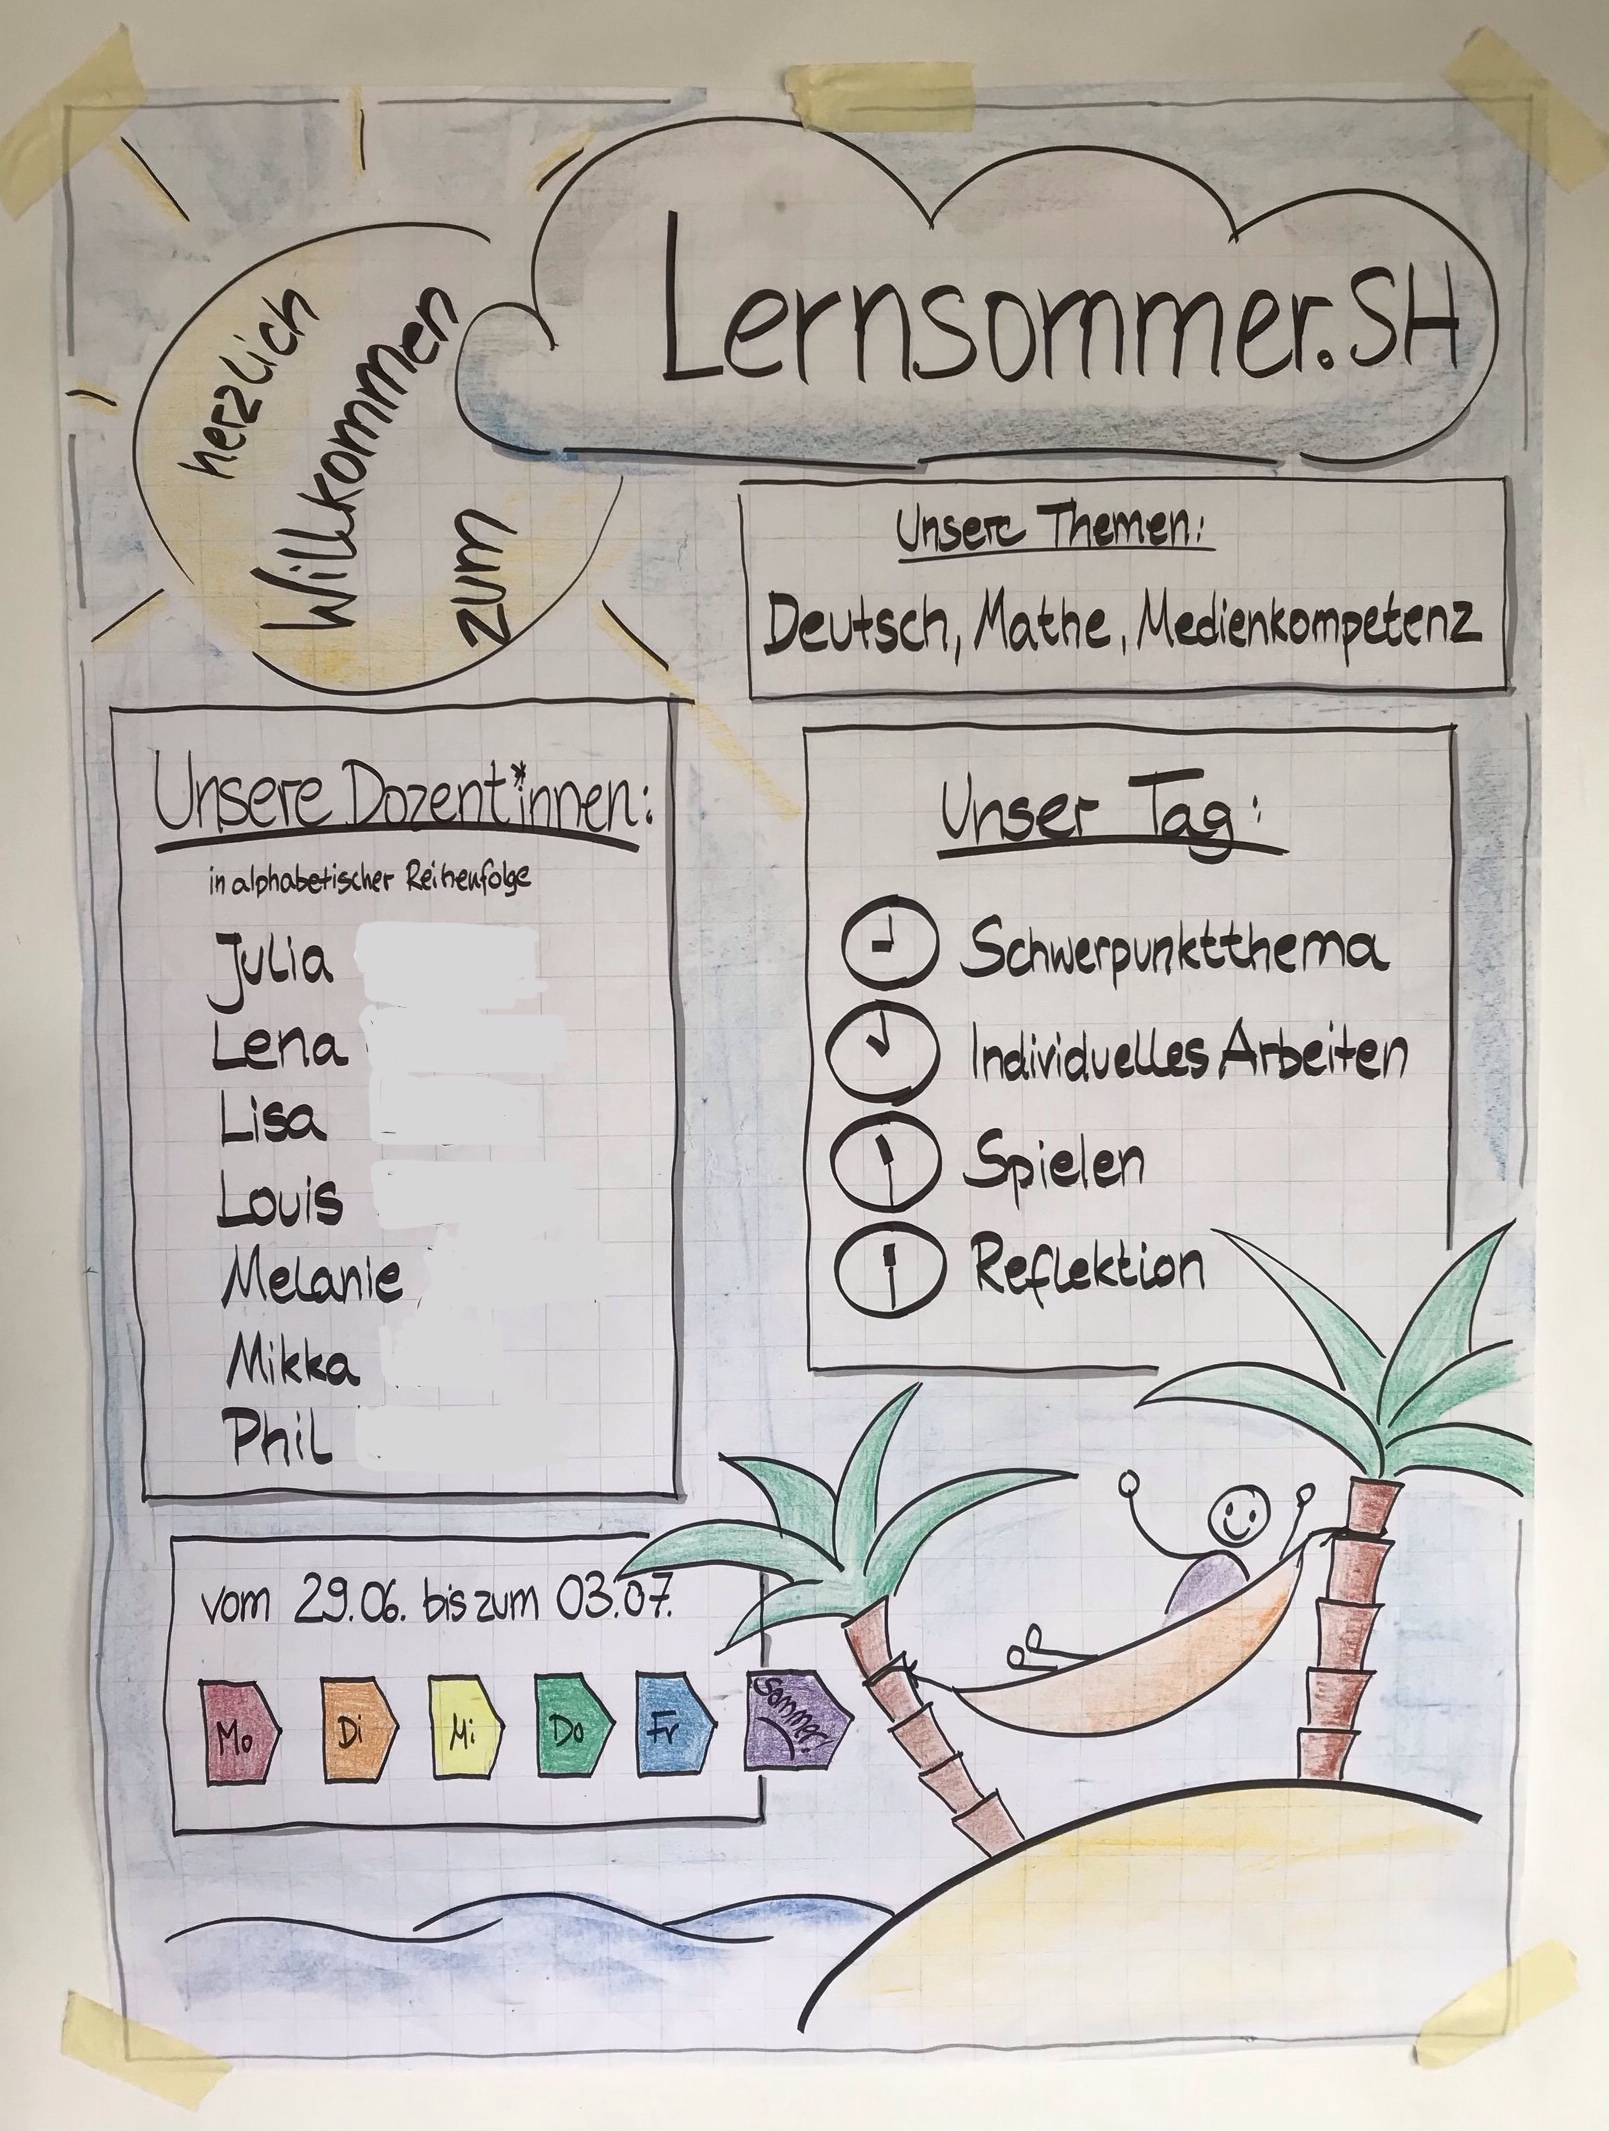 herzlich
Willkommen
zum
Lernsommer.SH
Unsere Themen:
Deutsch, Mathe, Medienkompetenz
Unsere Dozent*innen:
in alphabetischer Reihenfolge
Julia
Lena
Lisa
Louis
Melanie
Mikka
Phil
Unser Tag:
Schwerpunktthema
Individuelles Arbeiten
Spielen
Reflektion
vom 29.06. bis zum 03.07.
Mo Di Mi Do Fr Sommer!